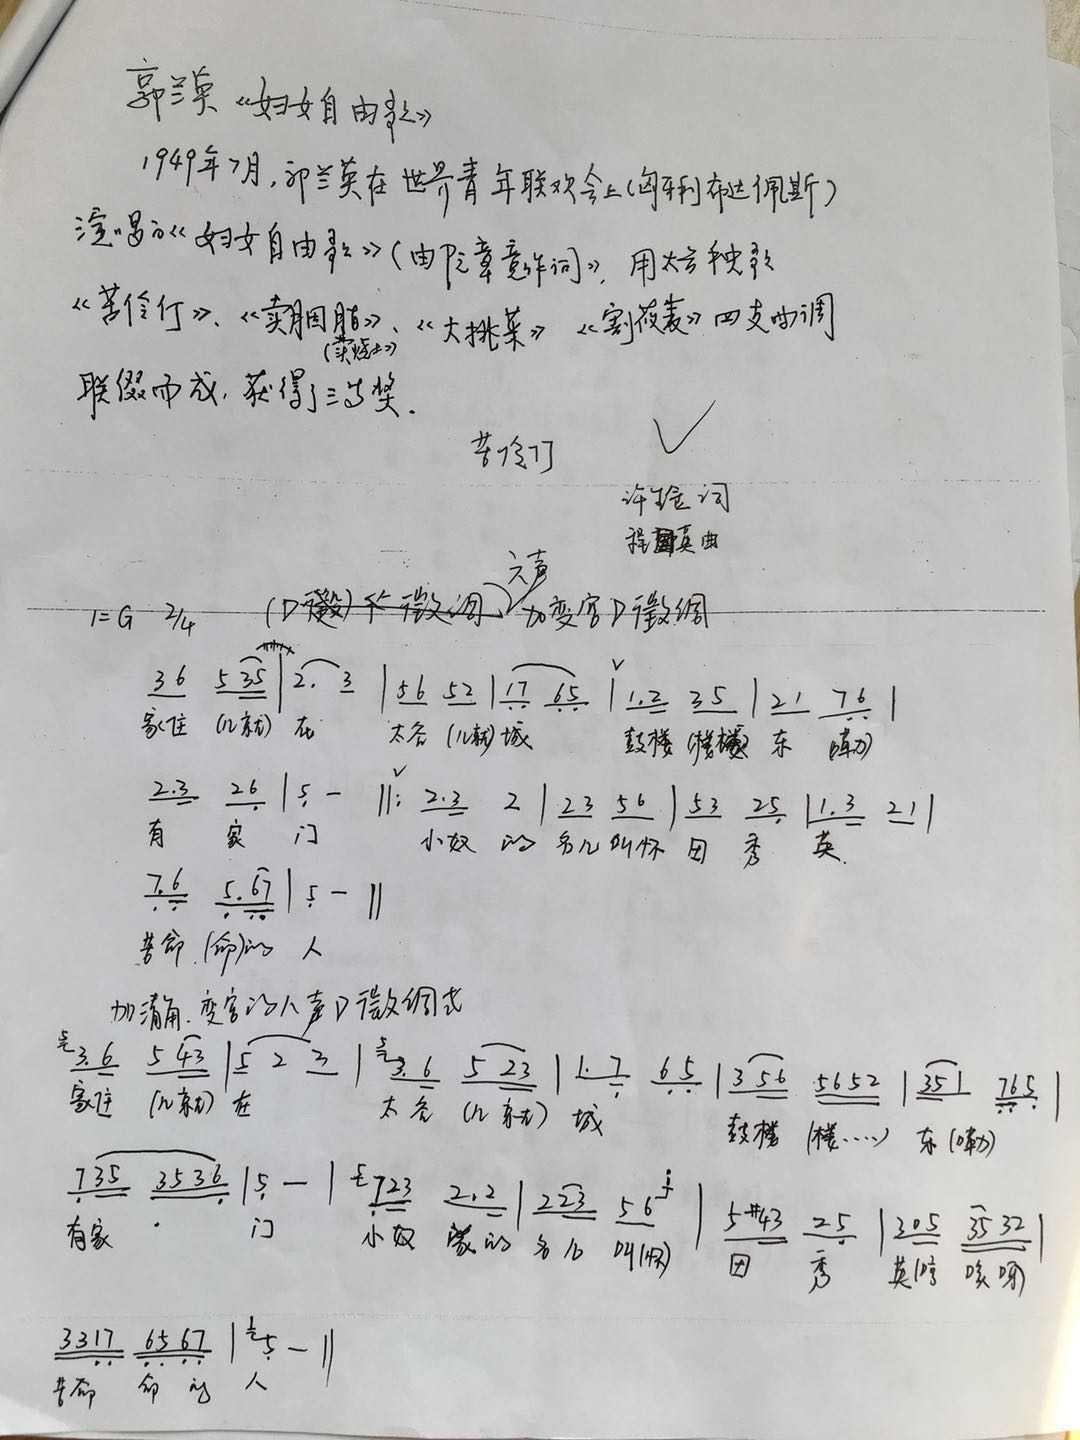 郭兰英《妇女自由歌》
1949年7月,郭兰英在世界青年联欢会上(匈牙利布达佩斯)
演唱的《妇女自由歌》(由阮章竞作词》,用太谷秧歌
《苦伶仃》、《卖胭脂》、《大挑菜》《割莜麦》四支曲调
(卖烧土》)
联缀而成,获得了三等奖.
苦伶仃
词
曲
六声
1=G 2/4 (D徵)下徵调 加变宫D徵调
36 535|2. 3|56 52|17 65|1.2 35|21 76|
家住 (儿就) 在 太谷 (儿就) 城 鼓楼 (楼楼) 东 (嘞)
2.3 26|5 - ‖: 2.3 2|23 56|53 25|1.3 21|
有 家 门 小奴 的 名儿 叫怀 田 秀 英.
7.6 5.67|5 - ‖
苦命 (命)的 人
加清角.变宫的八声D徵调式
3.6 543|5 2 3|3.6 523|1.7 65|356 5652|351 765|
家住 (儿就) 在 太谷 (儿就) 城 鼓楼 (楼.....) 东(嘞)
735 3536|5 - |723 2.2|223 56|5#43 25|305 3532|
有家 门 小奴 家的 名儿 叫(怀) 田 秀 英(哼 咳呀)
3317 6567|5 - ‖
苦命 命 的 人